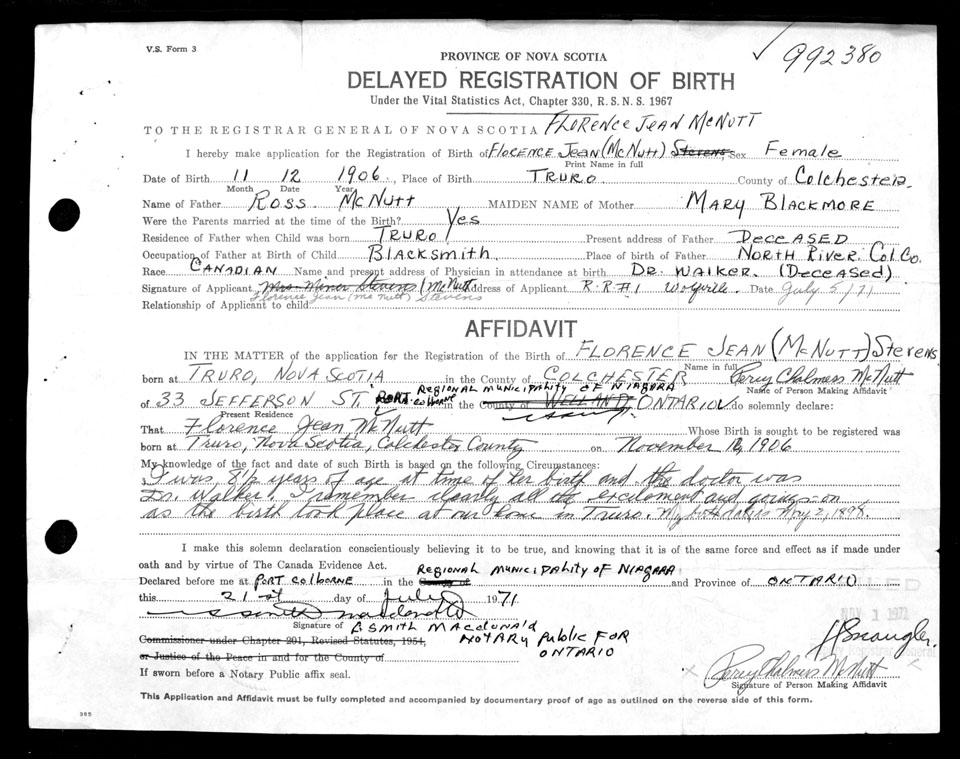 V.S. Form 3
992380
PROVINCE OF NOVA SCOTIA
DELAYED REGISTRATION OF BIRTH
Under the Vital Statistics Act, Chapter 330, R.S.N.S. 1967
TO THE REGISTRAR GENERAL OF NOVA SCOTIA FLORENCE JEAN MCNUTT
I hereby make application for the Registration of Birth of FLORENCE JEAN (McNUTT) STEVENS, Sex Female
Print Name in full
Date of Birth 11 12 1906, Place of Birth TRURO County of Colchester.
Month Date Year
Name of Father ROSS McNUTT MAIDEN NAME of Mother MARY BLACKMORE
Were the Parents married at the time of the Birth? Yes
Residence of Father when Child was born TRURO Present address of Father DECEASED
Occupation of Father at Birth of Child BLACKSMITH Place of birth of Father NORTH RIVER. Col. Co.
Race CANADIAN Name and present address of Physician in attendance at birth DR. WALKER. (Deceased)
Signature of Applicant Mrs. Miner Stevens (McNutt Address of Applicant R.R#1 Wolfville. Date July 5/71
Florence Jean (Mc Nutt) Stevens
Relationship of Applicant to child
AFFIDAVIT
IN THE MATTER of the application for the Registration of the Birth of FLORENCE JEAN (McNUTT) Stevens
Name in full
born at TRURO, NOVA SCOTIA in the County of COLCHESTER Percy Chalmers McNutt
Name of Person Making Affidavit
REGIONAL MUNICIPALITY OF NIAGARA
of 33 JEFFERSON ST. PORT COLBORNE in the County of WELLAND ONTARIO do solemnly declare:
Present Residence
That Florence Jean McNutt Whose Birth is sought to be registered was
born at Truro, Nova Scotia, Colchester County on November 12, 1906
My knowledge of the fact and date of such Birth is based on the following Circumstances:
I was 8½ years of age at time of her birth and the doctor was
Dr. Walker. I remember clearly all the excitement and goings-on
as the birth took place at our home in Truro. My birthdate is May 2, 1898.
I make this solemn declaration conscientiously believing it to be true, and knowing that it is of the same force and effect as if made under
oath and by virtue of The Canada Evidence Act.
REGIONAL MUNICIPALITY OF NIAGARA
Declared before me at PORT COLBORNE in the County of and Province of ONTARIO
this 21st day of July 1971
NOV 1 1971
Signature of E SMITH MACDONALD
Commissioner under Chapter 201, Revised Statutes, 1954, NOTARY PUBLIC FOR
or Justice of the Peace in and for the County of ONTARIO
Registrar General
If sworn before a Notary Public affix seal.
Percy Chalmers McNutt
Signature of Person Making Affidavit
This Application and Affidavit must be fully completed and accompanied by documentary proof of age as outlined on the reverse side of this form.
385